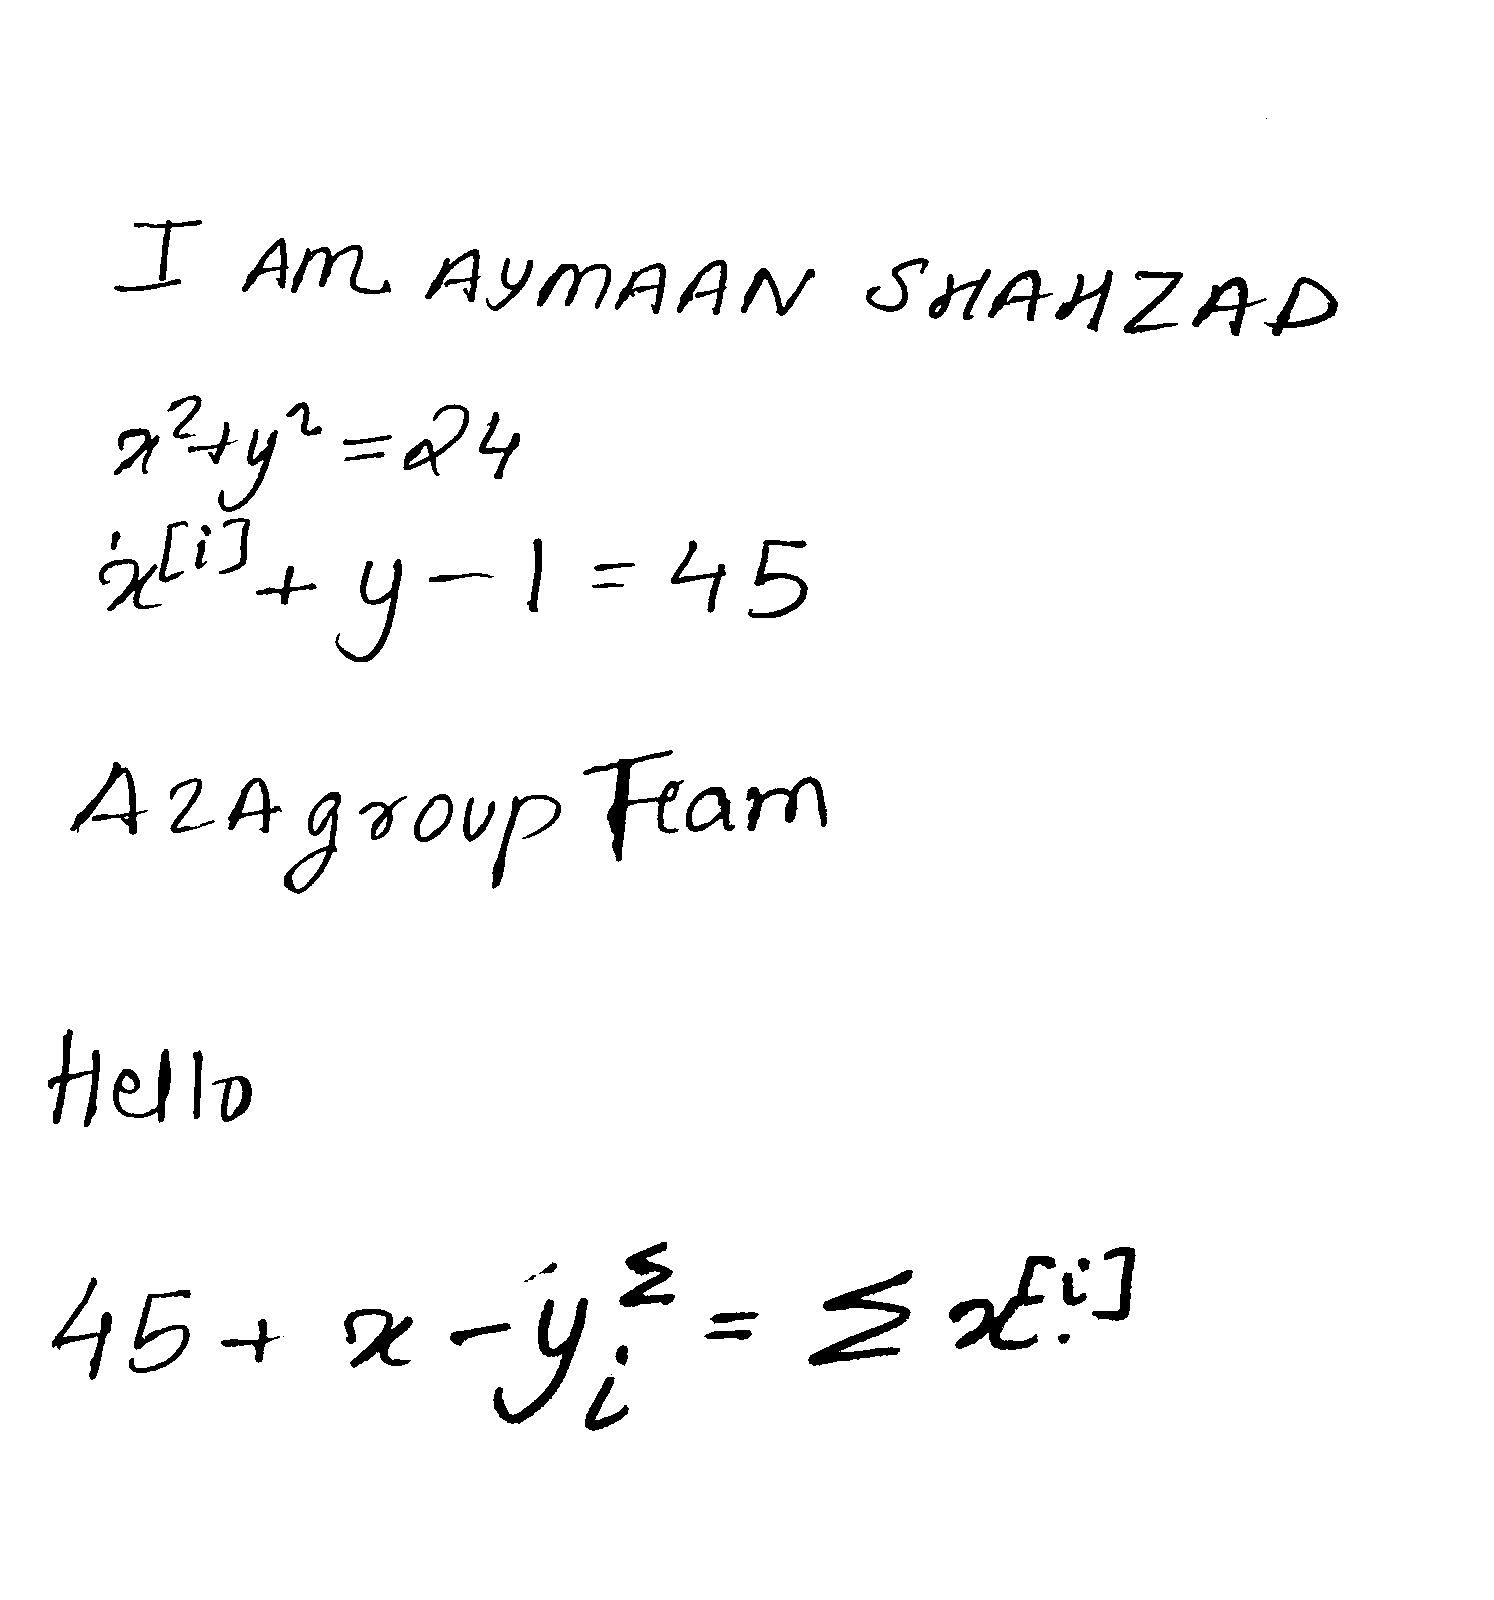 I AM AYMAAN SHAHZAD
x²+y²=24
x^[i] + y - 1 = 45
A2A group Team
Hello
45 + x - y_i^Σ = Σ x^[i]